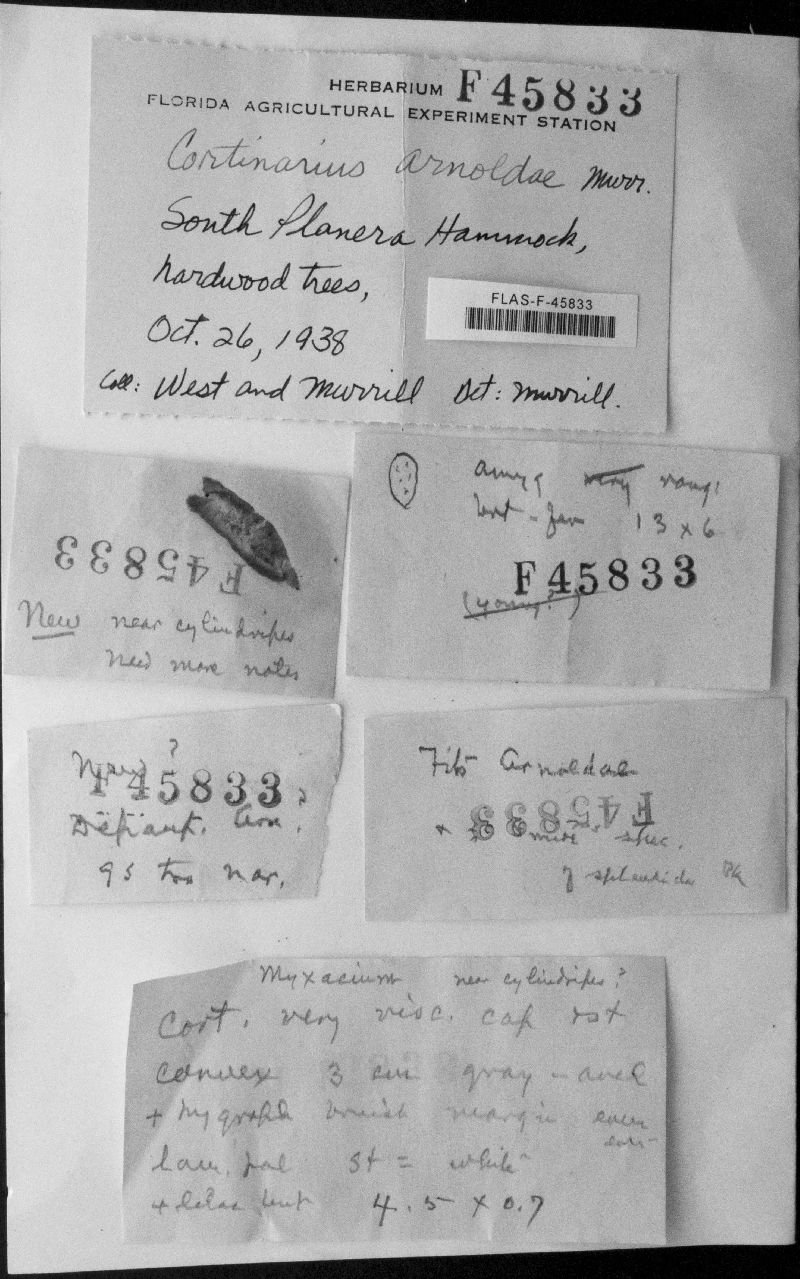 HERBARIUM F45833
FLORIDA AGRICULTURAL EXPERIMENT STATION
Cortinarius arnoldae Murr.
South Planera Hammock,
hardwood trees,
Oct. 26, 1938
FLAS-F-45833
Coll: West and Murrill Det: Murrill.
F45833
New near cylindripes
Need more notes
amyg
13 x 6
F45833
(young?)
?
F45833
Fits Arnoldae
F45833
+
spec.
splendida
Myxacium near cylindripes?
Cort. very visc. cap
convex 3 cm gray - avel
+ hygroph margin even
lam. st = white
+ 4.5 x 0.7